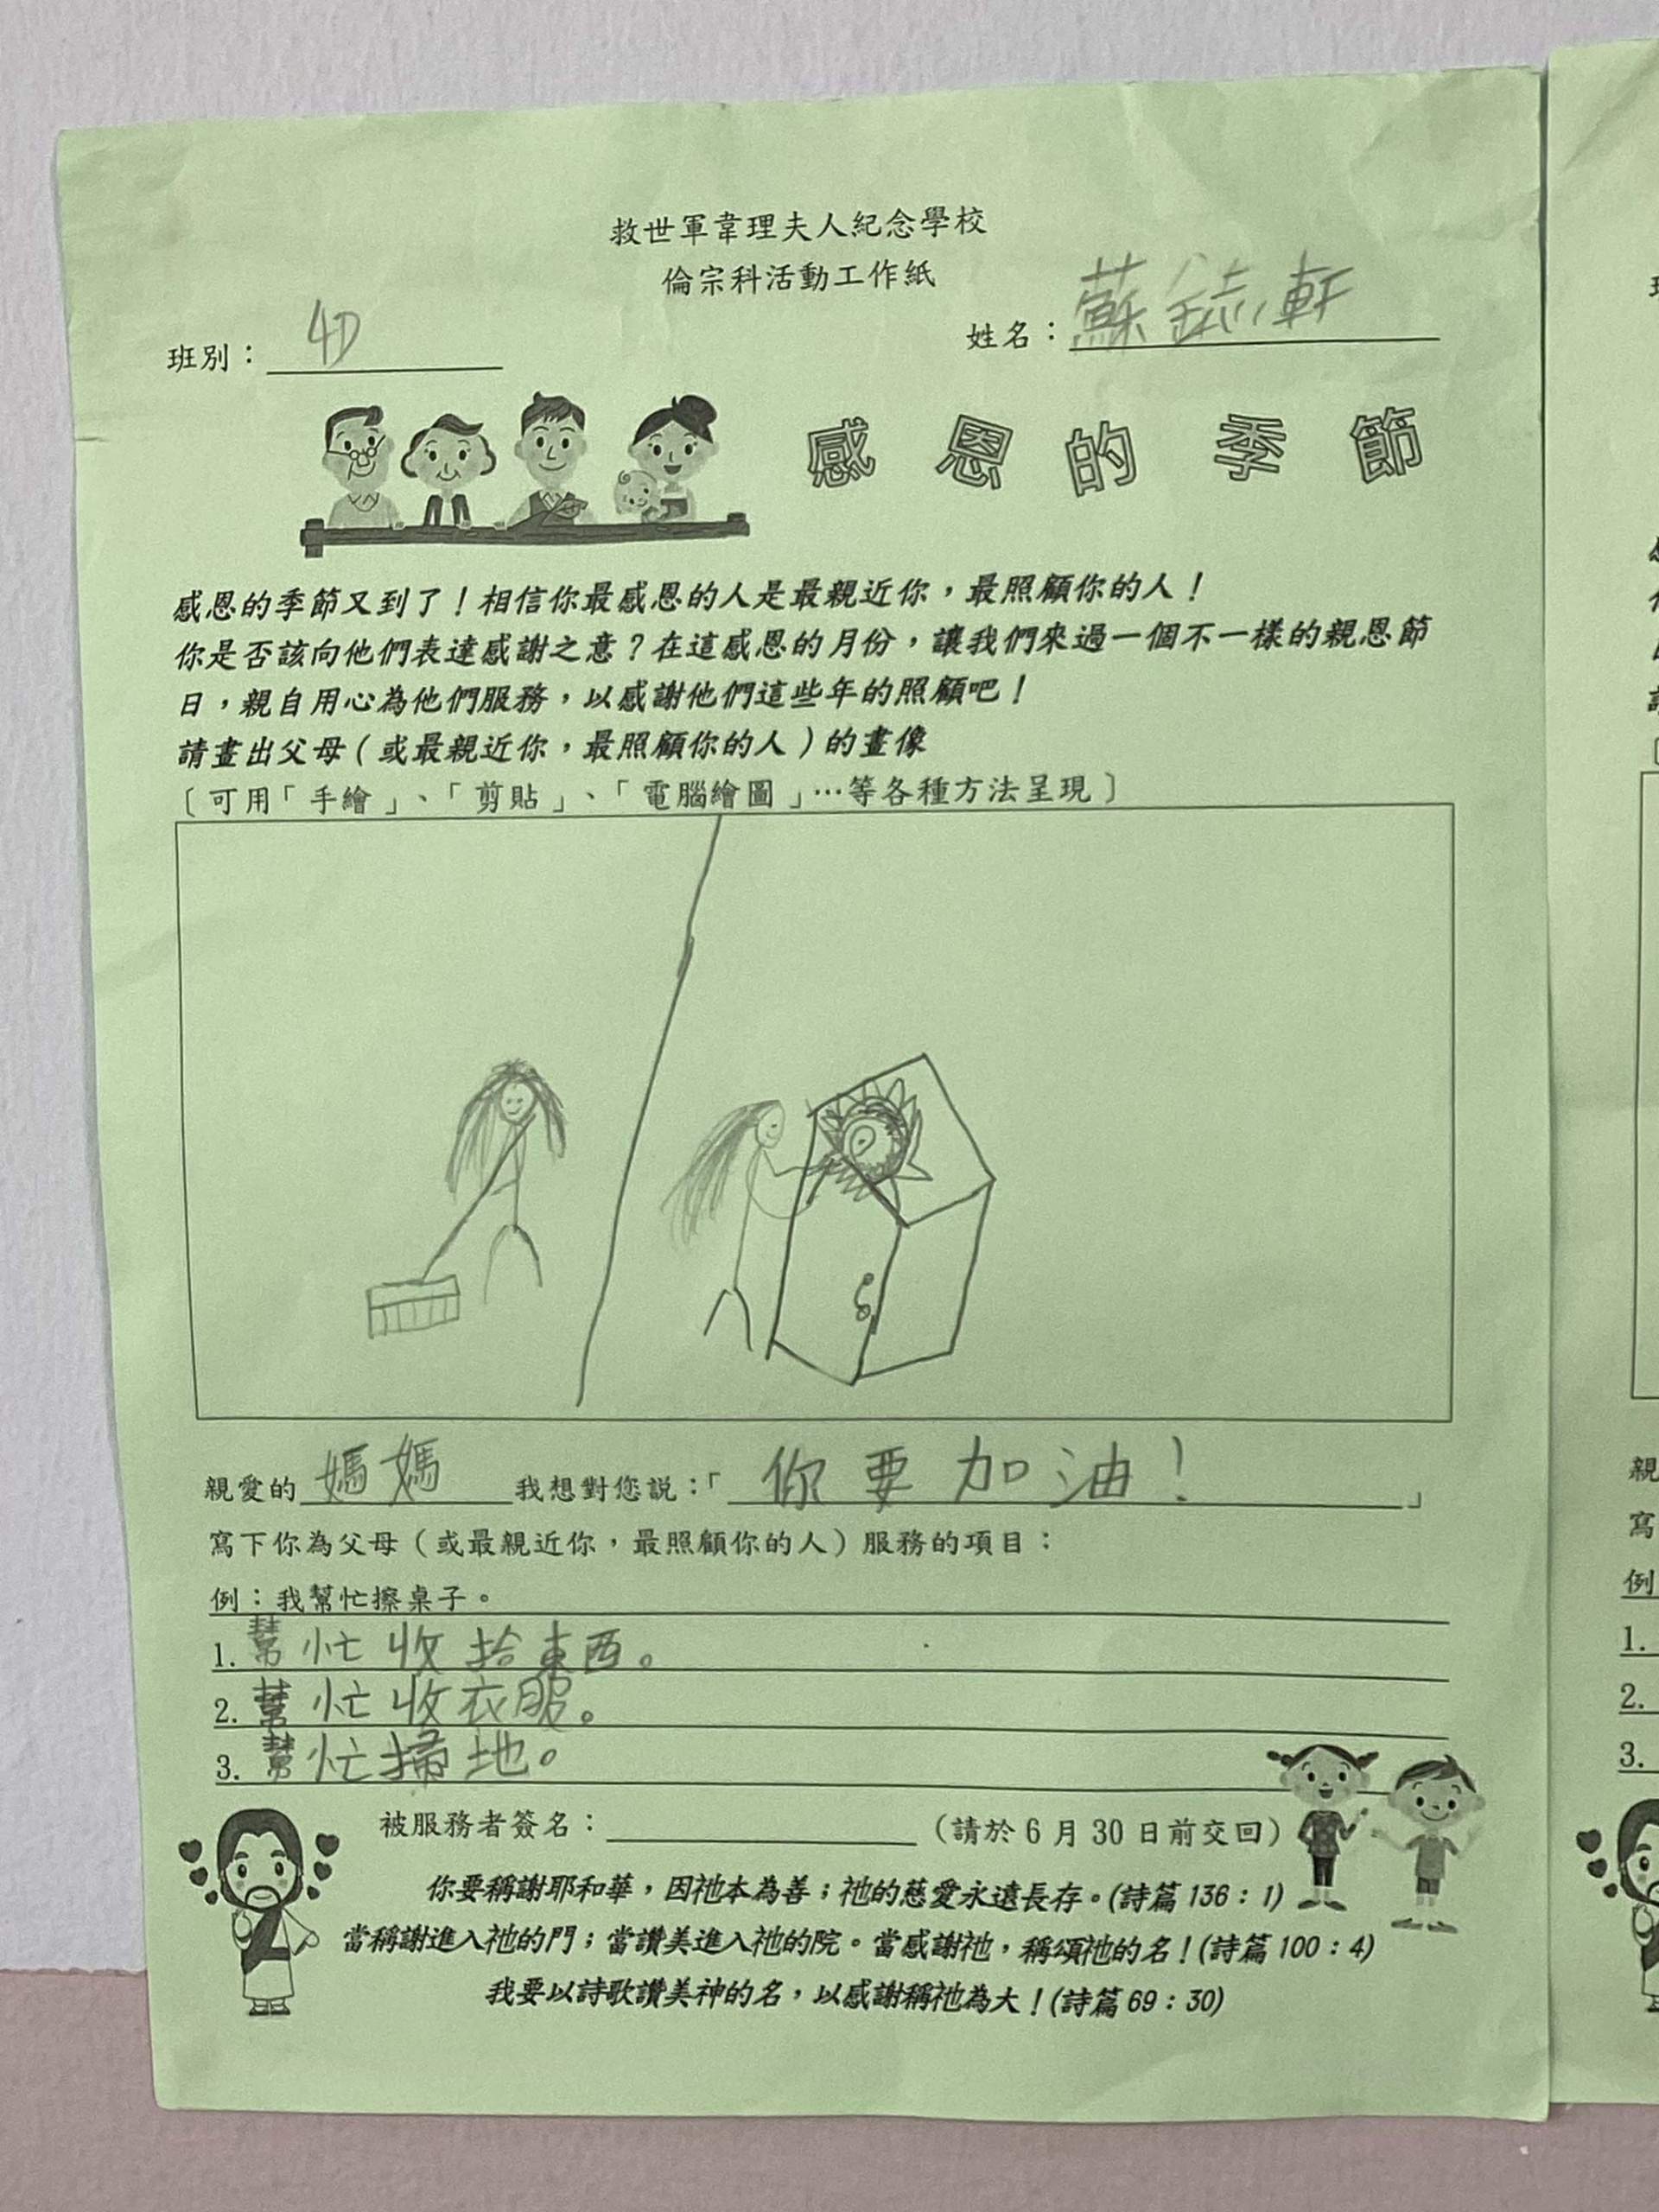 救世軍韋理夫人紀念學校
倫宗科活動工作紙
班別：4D 姓名：蘇鋕軒
感恩的季節
感恩的季節又到了！相信你最感恩的人是最親近你，最照顧你的人！
你是否該向他們表達感謝之意？在這感恩的月份，讓我們來過一個不一樣的親恩節
日，親自用心為他們服務，以感謝他們這些年的照顧吧！
請畫出父母（或最親近你，最照顧你的人）的畫像
〔可用「手繪」、「剪貼」、「電腦繪圖」…等各種方法呈現〕
親愛的媽媽我想對您說：「你要加油！」
寫下你為父母（或最親近你，最照顧你的人）服務的項目：
例：我幫忙擦桌子。
1. 幫忙收拾東西。
2. 幫忙收衣服。
3. 幫忙掃地。
被服務者簽名： （請於6月30日前交回）
你要稱謝耶和華，因祂本為善；祂的慈愛永遠長存。(詩篇136：1)
當稱謝進入祂的門；當讚美進入祂的院。當感謝祂，稱頌祂的名！(詩篇100：4)
我要以詩歌讚美神的名，以感謝稱祂為大！(詩篇69：30)
親
寫
例
1.
2.
3.